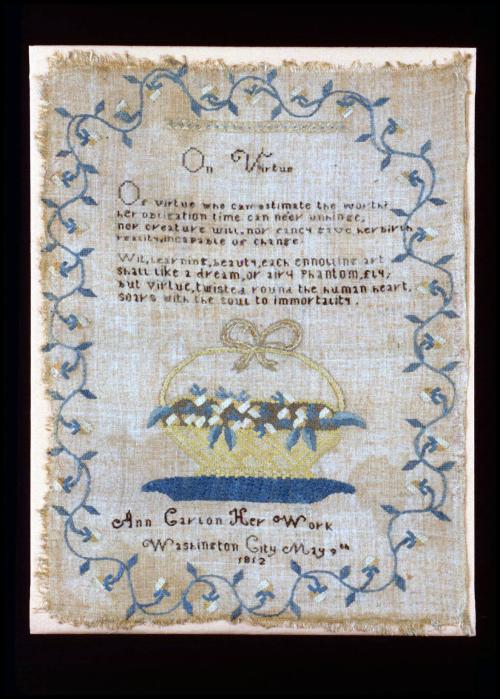 On Virtue
Of virtue who can estimate the worth?
her obligation time can ne'er unhinge,
nor creature will, nor fancy gave her birth
reality, incapable of change.
Wit, learning, beauty, each ennobling art
shall like a dream, or airy Phantom, fly,
but Virtue, twisted round the human heart,
soars with the soul to immortality.
Ann Carlon Her Work
Washington City May 9th
1812